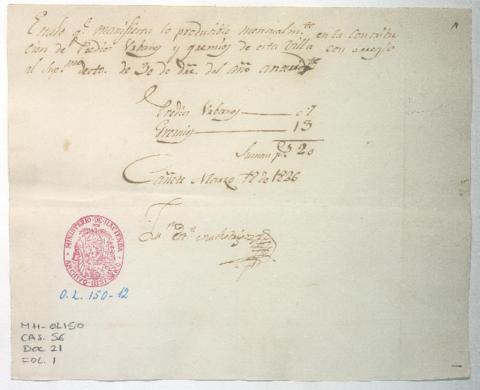 Estado qᵉ manifiesta lo producible mensualmᵗᵉ en la contribu
cion de Predios Urbanos y gremios de esta Villa con arreglo
al Supᵐᵒ decto. de 30 de Dᵉ. del año
Predios Urbanos 07
Gremios 13
Suman pˢ 20
Cañete Marzo 12 de 1826
MINISTERIO DE HACIENDA
ARCHIVO HISTORICO
O.L. 150-12
MH-OL150
CAJ. 56
DOC 21
FOL. 1